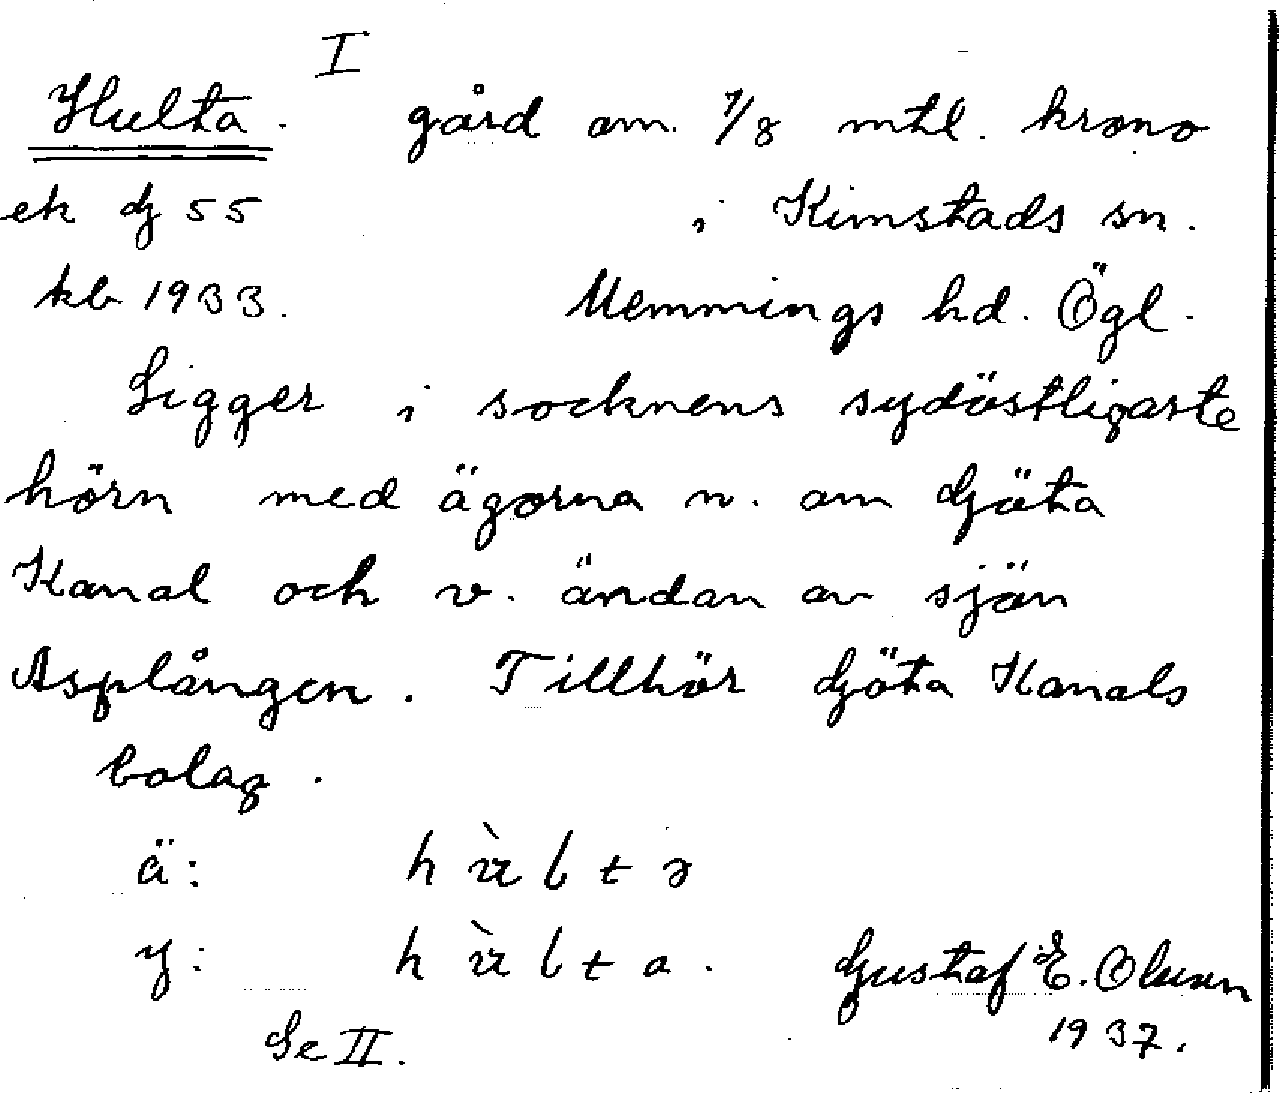 I
Hulta. gård om 7/8 mtl. krono
ek dj 55 i Kimstads sn.
kb 1933. Memmings hd. Ögl.
Ligger i socknens sydöstligaste
hörn med ägorna n. om Göta
Kanal och v. ändan av sjön
Asplången. Tillhör Göta Kanals
bolag.
ä: h ù l t ə
y: h ù l t a. Gustaf E. Olsson
Se II. 1937.